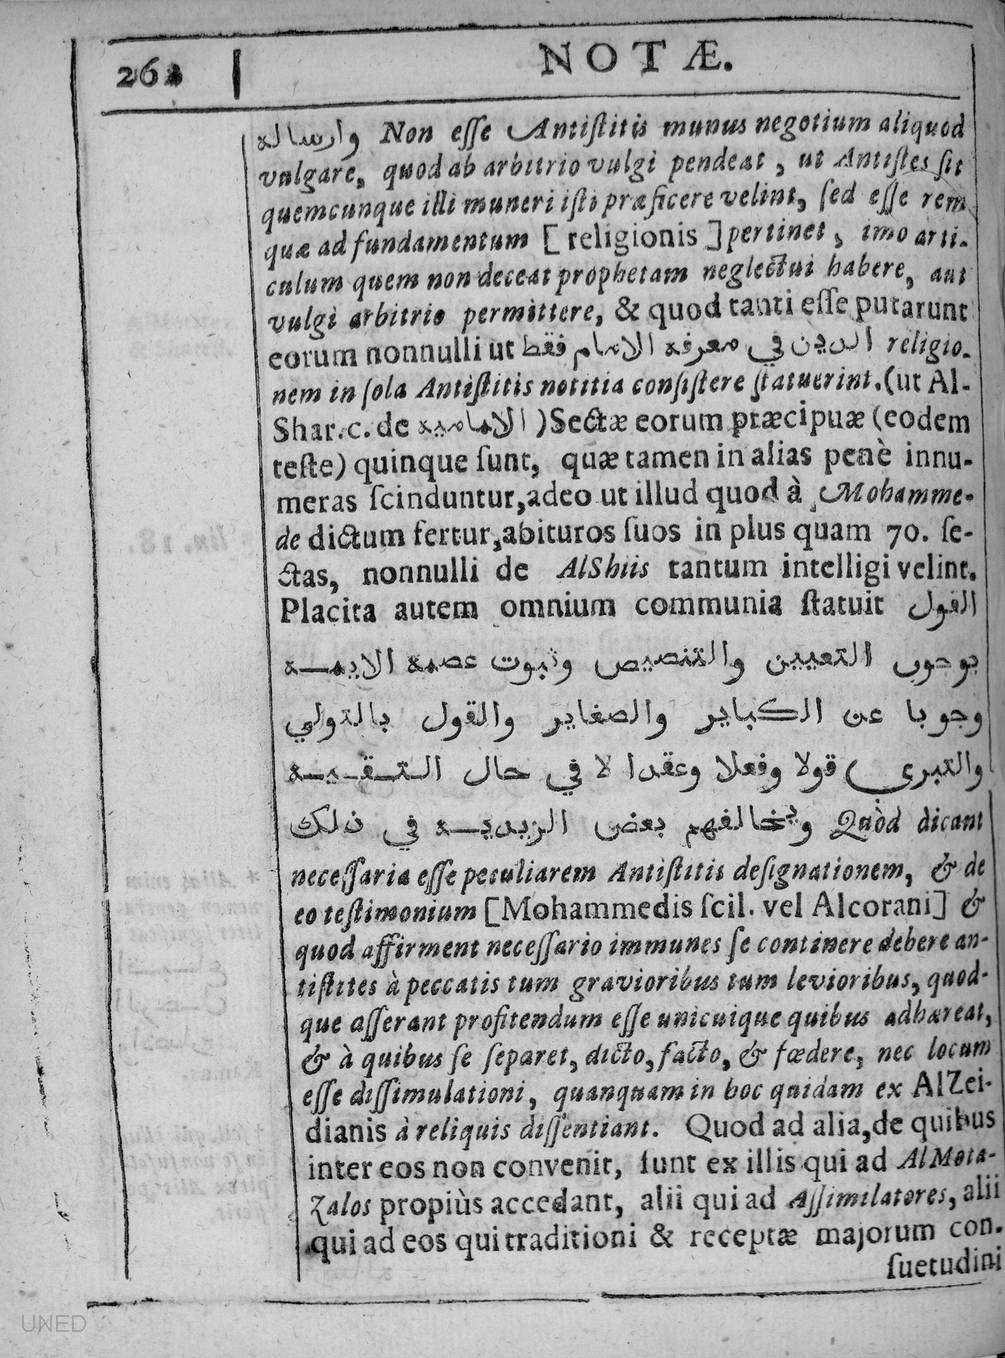 262
NOTÆ.
وارساله Non eſſe Antiſtitis munus negotium aliquod
vulgare, quod ab arbitrio vulgi pendeat, ut Antiſtes ſit
quemcunque illi muneri iſti præficere velint, ſed eſſe rem
quæ ad fundamentum [religionis] pertinet, imo arti-
culum quem non deceat prophetam neglectui habere, aut
vulgi arbitrio permittere, & quod tanti eſſe putarunt
eorum nonnulli ut الدين في معرفة الامام فقط religio-
nem in ſola Antiſtitis notitia conſiſtere ſtatuerint. (ut Al-
Shar. c. de الامامية) Sectæ eorum præcipuæ (eodem
teſte) quinque ſunt, quæ tamen in alias penè innu-
meras ſcinduntur, adeo ut illud quod à Mohamme-
de dictum fertur, abituros ſuos in plus quam 70. ſe-
ctas, nonnulli de AlShiis tantum intelligi velint.
Placita autem omnium communia ſtatuit القول
بوجوب التعيين والتنصيص وثبوت عصمة الايمــة
وجوبا عن الكباير والصغاير والقول بالتولي
والتبري قولا وفعلا وعقدا لا في حال التـقـيـة
ويخالفهم بعض الزيديــة في ذلك Quòd dicant
neceſſaria eſſe peculiarem Antiſtitis deſignationem, & de
eo teſtimonium [Mohammedis ſcil. vel Alcorani] &
quod affirment neceſſario immunes ſe continere debere an-
tiſtites à peccatis tum gravioribus tum levioribus, quod-
que aſſerant profitendum eſſe unicuique quibus adhæreat,
& à quibus ſe ſeparet, dicto, facto, & fœdere, nec locum
eſſe diſſimulationi, quanquam in hoc quidam ex AlZei-
dianis à reliquis diſſentiant. Quod ad alia, de quibus
inter eos non convenit, ſunt ex illis qui ad AlMota-
zalos propiùs accedant, alii qui ad Aſſimilatores, alii
qui ad eos qui traditioni & receptæ majorum con-
ſuetudini
UNED